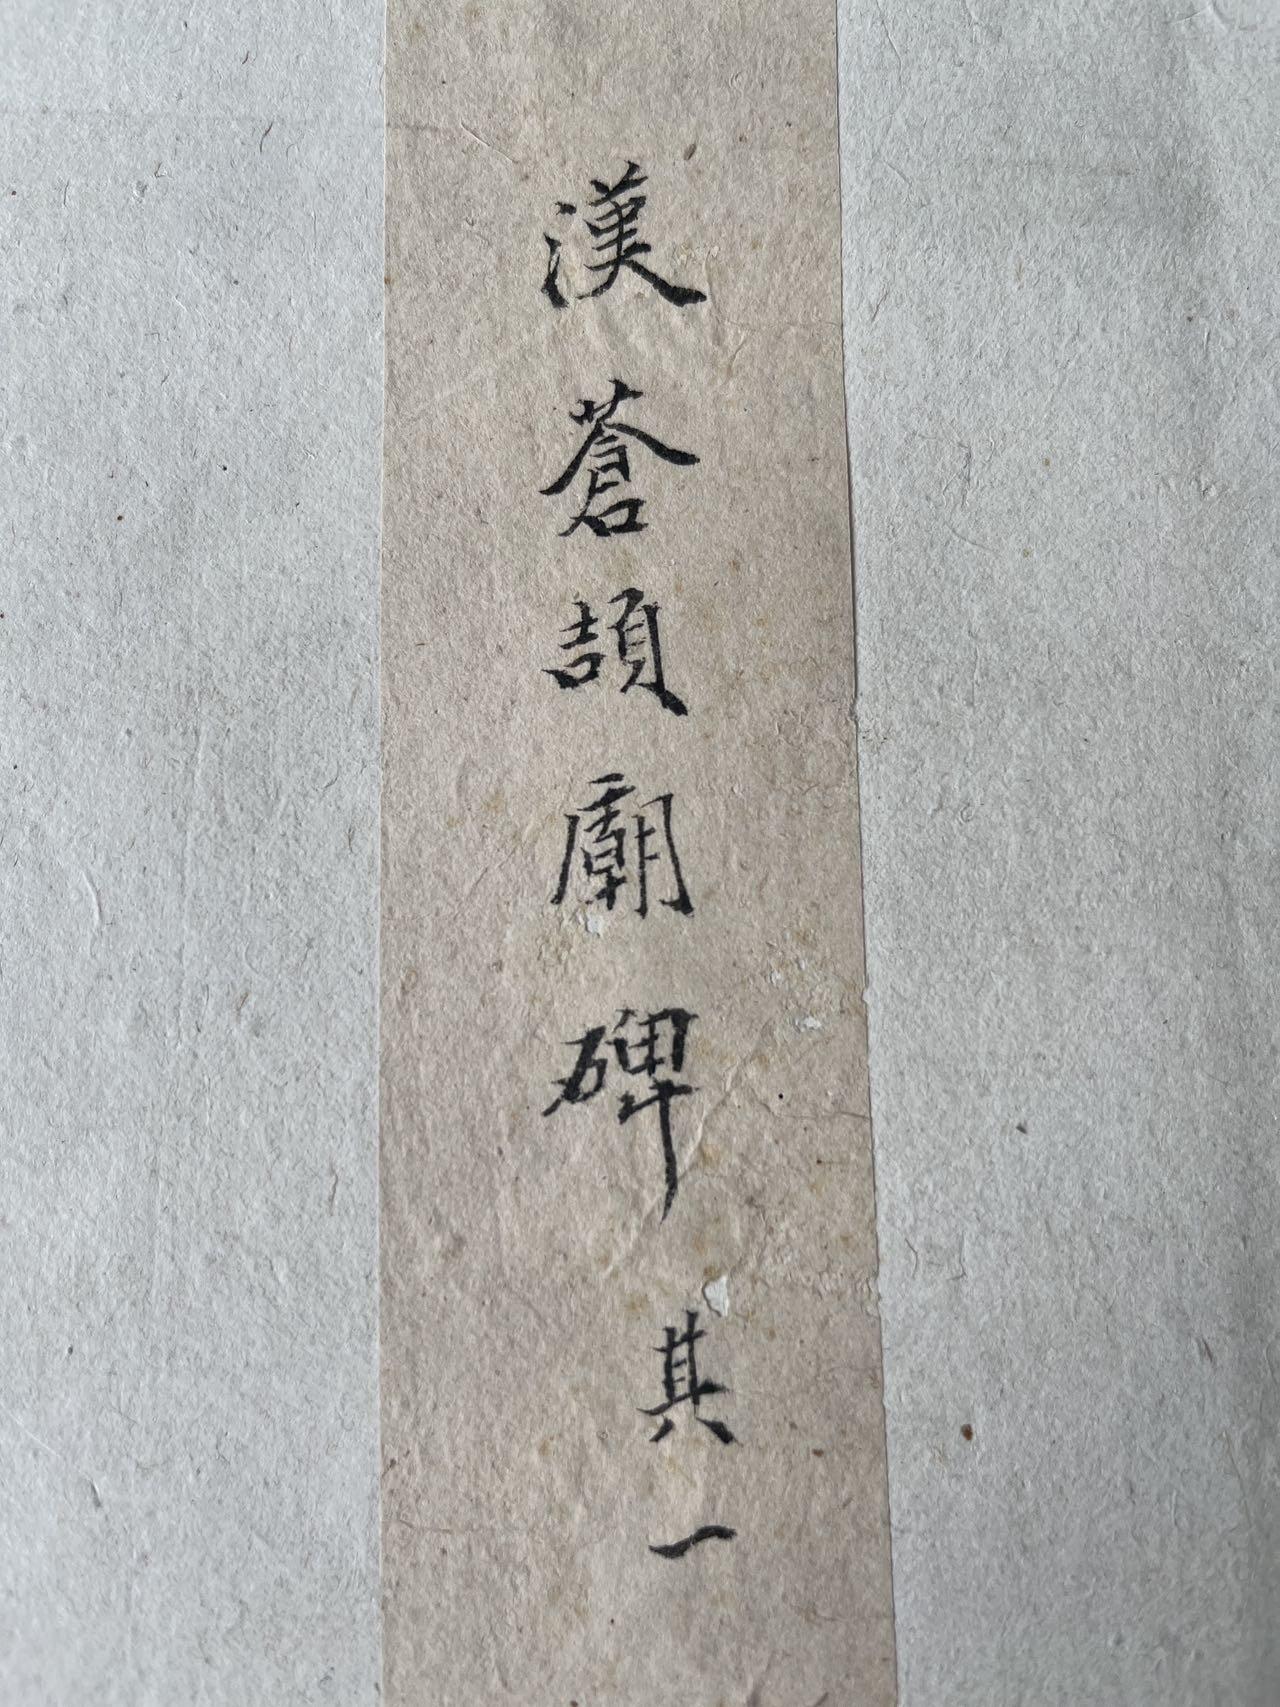 漢蒼頡廟碑其一